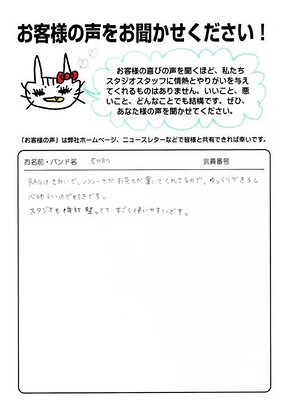 お客様の声をお聞かせください！
お客様の喜びの声を聞くほど、私たち
スタジオスタッフに情熱とやりがいを与え
てくれるものはありません。いいこと、悪
いこと、どんなことでも結構です。ぜひ、
あなた様の声を聞かせてください。
「お客様の声」は弊社ホームページ、ニュースレターなどで皆様と共有できれば幸いです。
お名前・バンド名
会員番号
きれいで、
お花が置いてくれてるので、ゆっくりできるし
好きです。
スタジオも機材 整ってて すごく使いやすいです。